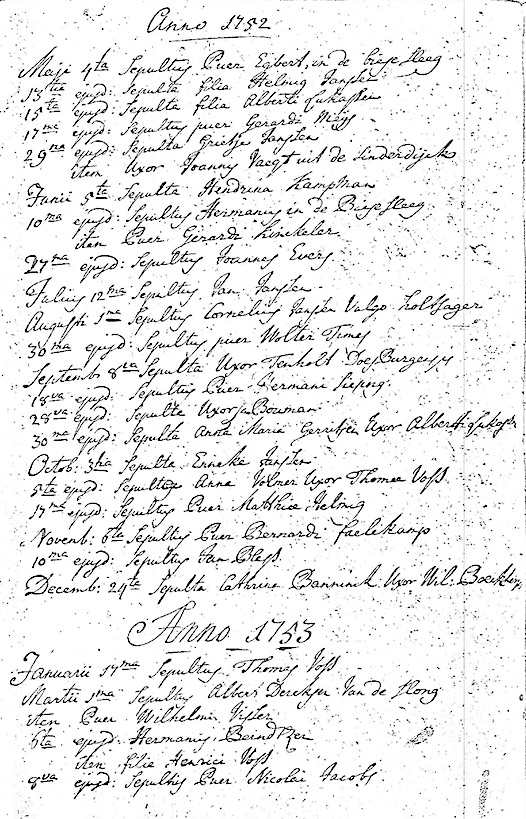 Anno 1752
Maji 4ta Sepultus Puer Egbert in de Biese steeg
13tia ejusd: Sepulta filia Helmig Jansen
15ta ejusd: Sepulta filia Alberti Lukassen
17ma ejusd: Sepultus puer Gerardi Meijs
29na ejusd: Sepulta Grietje Jansen
item Uxor Joannis Vaegt uit de Linderdijck
Junii 5ta Sepulta Hendrina Kampman
10ma ejusd: Sepultus Hermanus in de Biese steeg
item Puer Gerardi Kinckeler
27ma ejusd: Sepultus Joannes Evers
Julius 12ma Sepultus Jan Jansen
Augusti 1ma Sepultus Cornelius Jansen Vulgo Holtsager
30ma ejusd: Sepultus puer Wolter Times
Septemb: 8va Sepulta Uxor Tenholt
18va ejusd: Sepultus Puer Hermani
28va ejusd: Sepulta Uxor Bouman
30ma ejusd: Sepulta Anna Maria Gerritsen Uxor Alberti Lukassen
Octob: 3tia Sepulta Enneke Jansen
5ta ejusd: Sepulta Anna Volmer Uxor Thomae Voss
17ma ejusd: Sepultus Puer Matthiae Helmig
Novemb: 6ta Sepultus Puer Bernardi Faelekamp
10ma ejusd: Sepultus Jan Bless
Decemb: 24ta Sepulta Cathrina Banninck Uxor Wil:
Anno 1753
Januarii 17ma Sepultus Thomas Voss
Martii 1ma Sepultus Albert Dercksen Van de
item Puer Wilhelmi Visser
6ta ejusd: Hermanus
item filia Henrici Voss
8va ejusd: Sepultus Puer Nicolai Jacobs